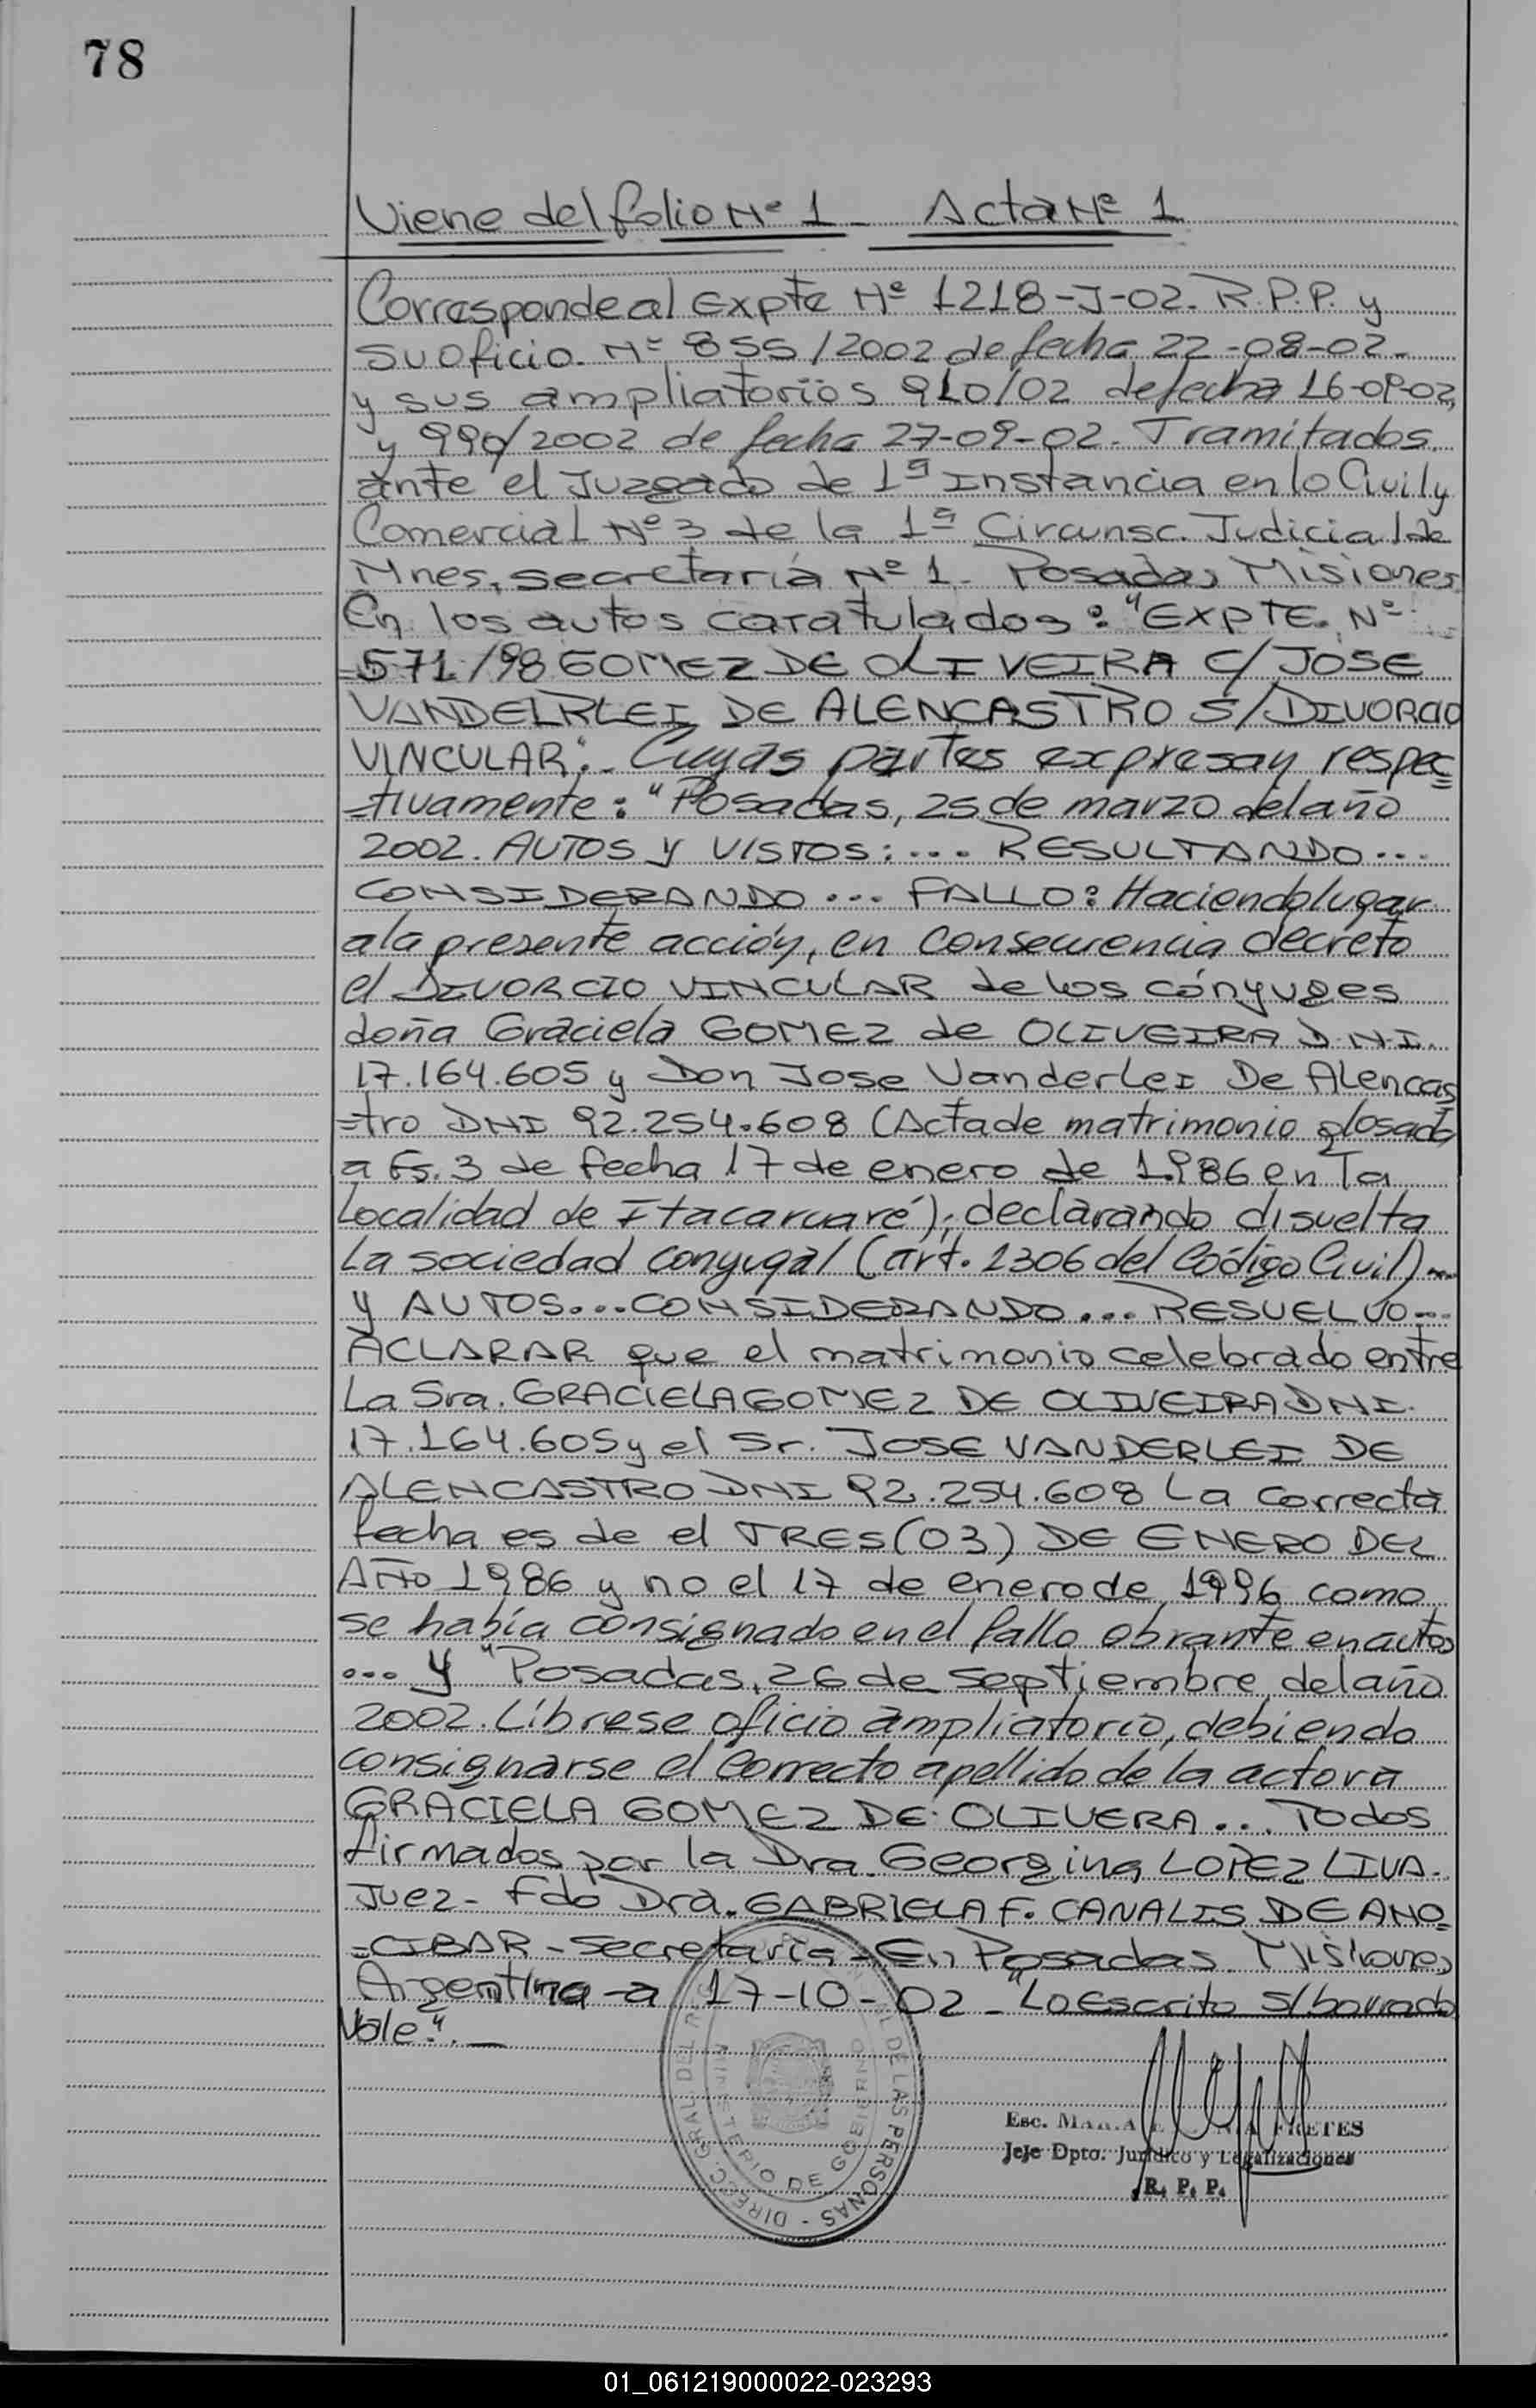 78
Viene del folio Nº 1 - Acta Nº 1
Corresponde al Expte Nº 1218-J-02. R.P.P. y
su oficio. Nº 855/2002 de fecha 22-08-02-
y sus ampliatorios 910/02 de fecha 16-09-02,
y 990/2002 de fecha 27-09-02. Tramitados
ante el Juzgado de 1ª Instancia en lo Civil y
Comercial Nº 3 de la 1ª Circunsc. Judicial de
Mnes, secretaría Nº 1. Posadas Misiones
En los autos caratulados: "EXPTE. Nº
571/98 GOMEZ DE OLIVEIRA C/ JOSE
VANDELRLEI DE ALENCASTRO S/ DIVORCIO
VINCULAR". Cuyas partes expresan respec
=tivamente: "Posadas, 25 de marzo del año
2002. AUTOS y VISTOS: ... RESULTANDO...
CONSIDERANDO ... FALLO: Haciendo lugar
a la presente acción, en consecuencia decreto
el DIVORCIO VINCULAR de los cónyuges
doña Graciela GOMEZ de OLIVEIRA D.N.I.
17.164.605 y Don Jose Vanderlei De Alencas
=tro DNI 92.254.608 (Acta de matrimonio glosada
a Fs. 3 de fecha 17 de enero de 1.986 en la
Localidad de Itacaruaré); declarando disuelta
la sociedad conyugal (art. 1306 del Código Civil)...
y AUTOS...CONSIDERANDO... RESUELVO...
ACLARAR que el matrimonio celebrado entre
La Sra. GRACIELA GOMEZ DE OLIVEIRA DNI.
17.164.605 y el Sr. JOSE VANDERLEI DE
ALENCASTRO DNI 92.254.608 La correcta
fecha es de el TRES (03) DE ENERO DEL
AÑO 1986 y no el 17 de enero de 1996 como
se había consignado en el fallo obrante en autos
... y "Posadas, 26 de septiembre del año
2002. Líbrese oficio ampliatorio, debiendo
consignarse el correcto apellido de la actora
GRACIELA GOMEZ DE OLIVERA... Todos
firmados por la Dra. Georgina LOPEZ LIVA.
Juez - Fdo Dra. GABRIELA F. CANALIS DE ANO=
=CIBAR - Secretaria - En Posadas Misiones
Argentina - a 17-10-02 - "Lo escrito s/borrado
Vale". —
DIRECC. GRAL. DEL DE LAS PERSONAS -
MINISTERIO DE GOBIERNO
Esc. FRETES
Jefe Dpto. Jurídico y Legalizaciones
R. P. P.
01_061219000022-023293